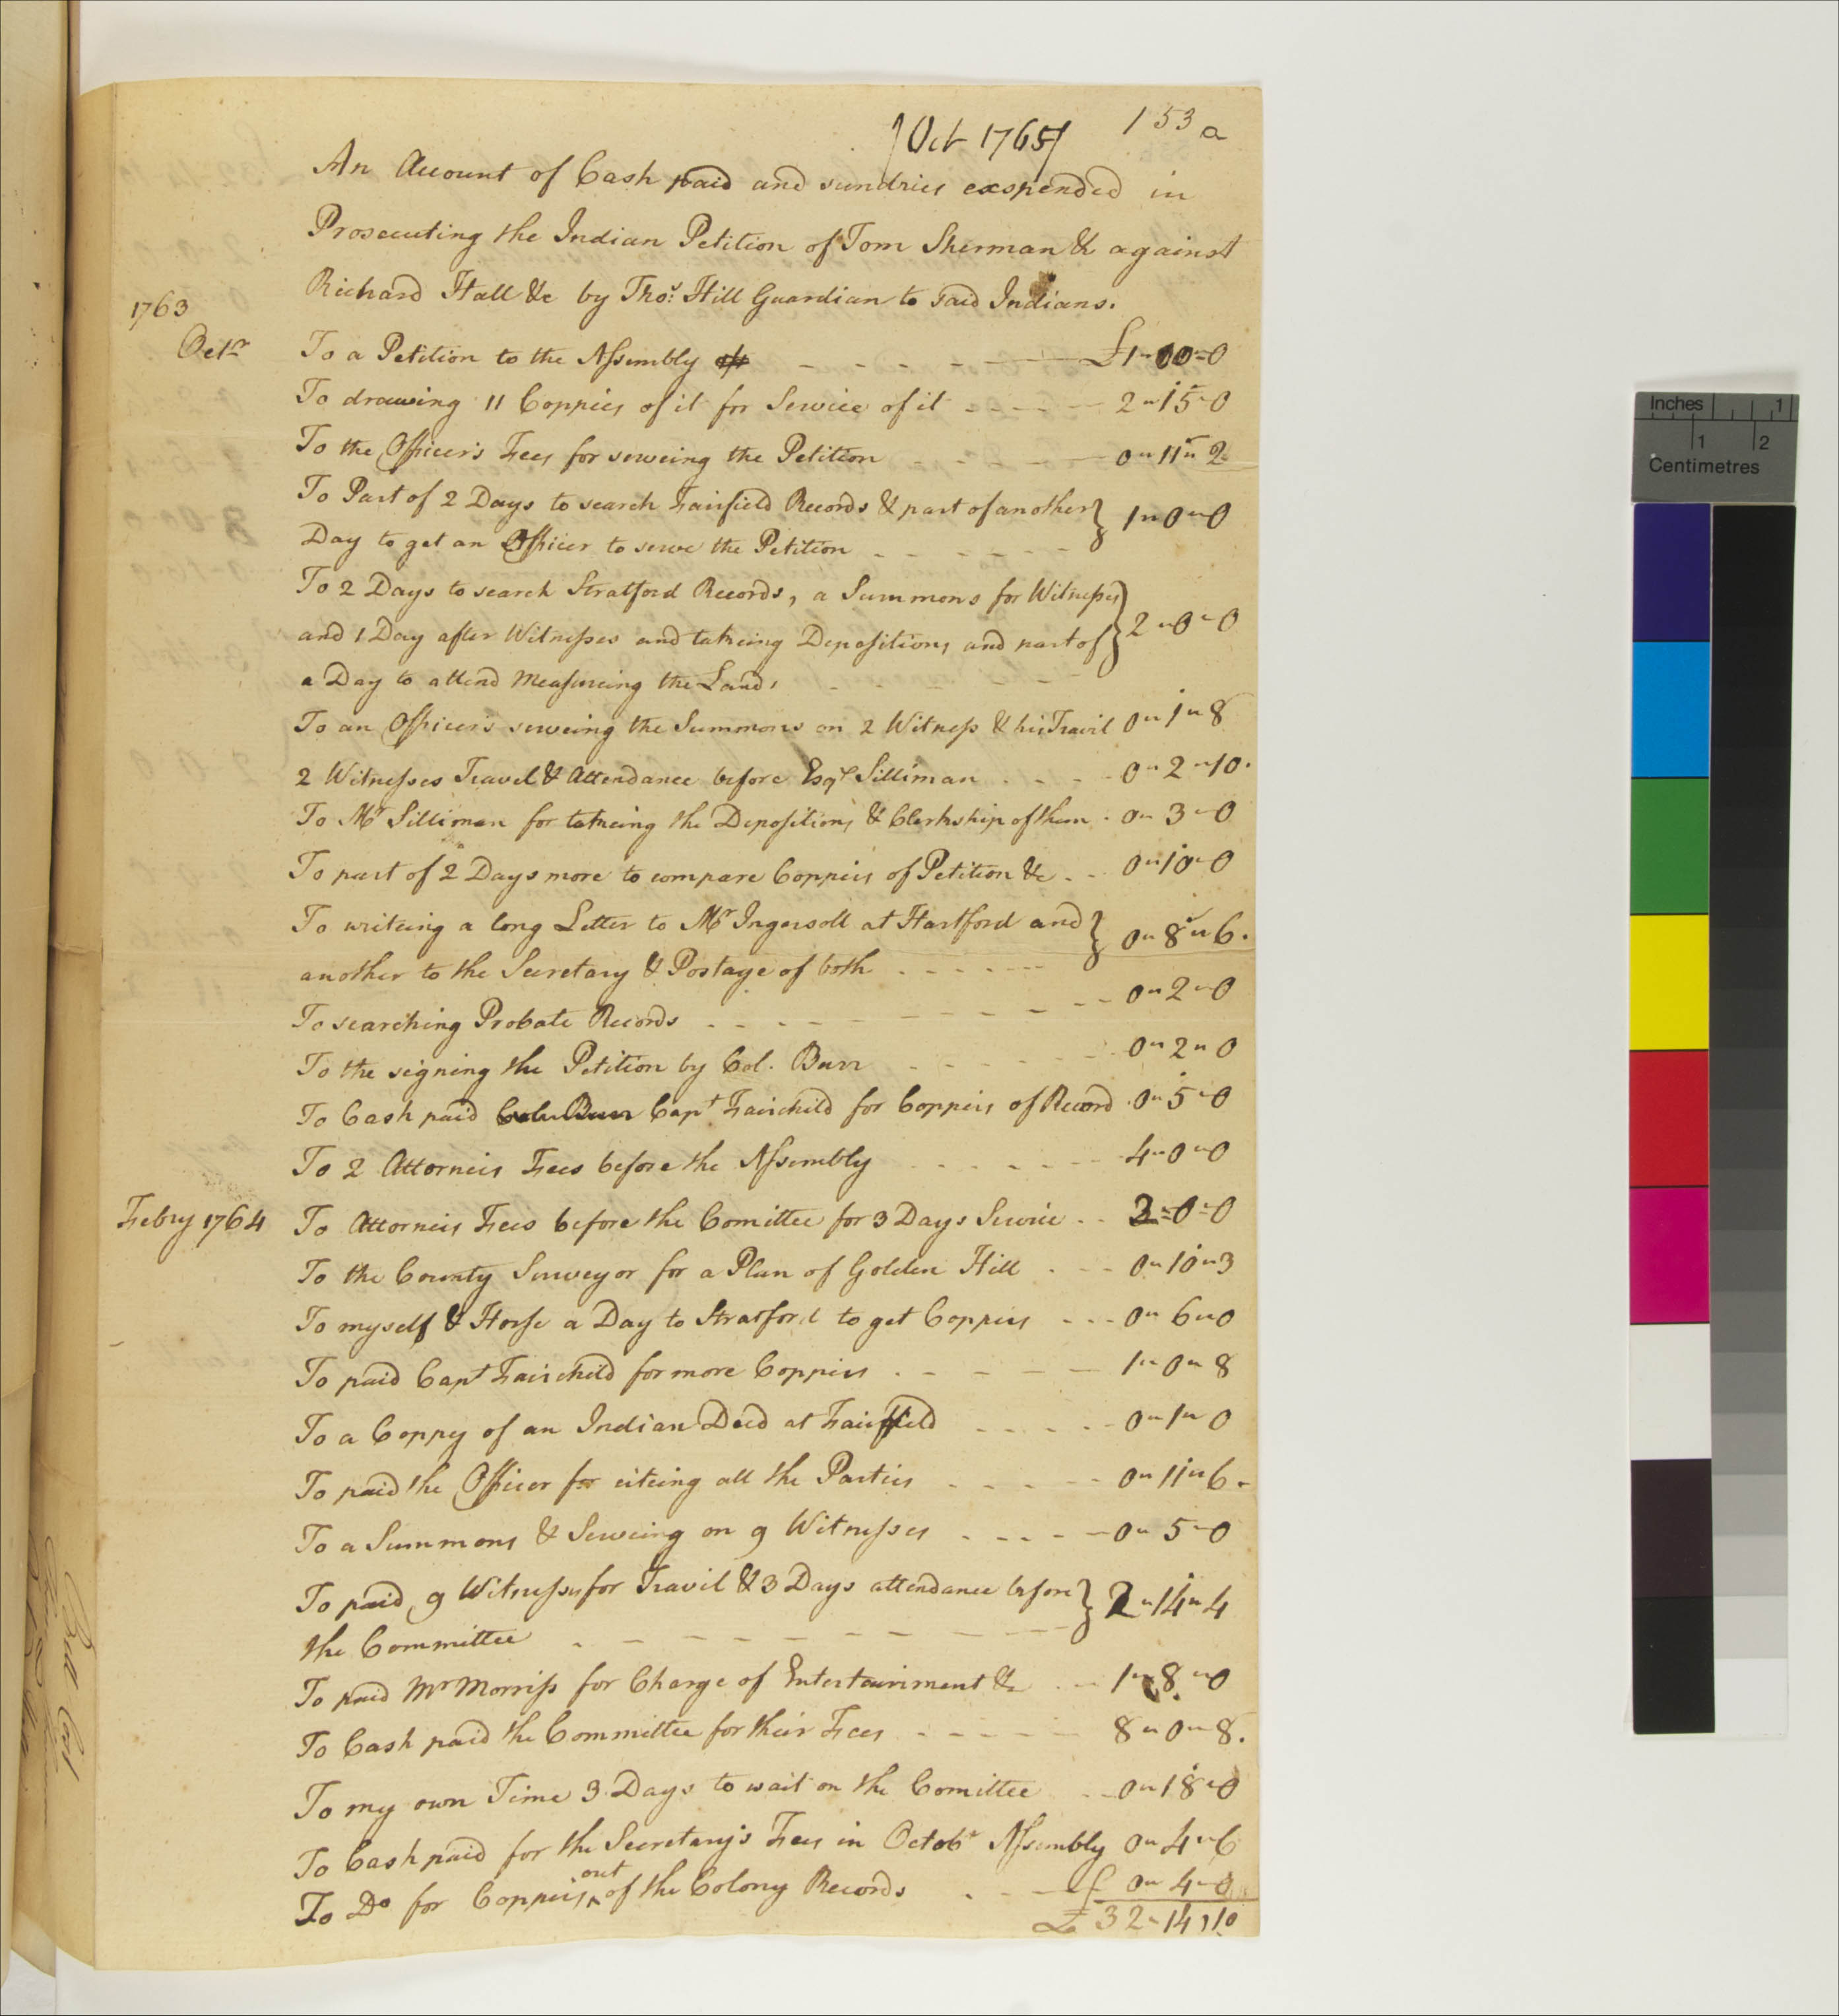 [Oct 1765] 153 a
An Account of Cash paid and sundries exspended in
Prosecuting the Indian Petition of Tom Sherman & against
Richard Hall &c by Thos: Hill Guardian to said Indians.
1763
Octr To a Petition to the Assembly £1-00-0
To drawing 11 Coppies of it for Service of it 2-15-0
To the Officer's Fees for serveing the Petition 0-11-2
To Part of 2 Days to search Fairfield Records & part of another } 1-0-0
Day to get an Officer to serve the Petition
To 2 Days to search Stratford Records, a Summons for Witnesses }
and 1 Day after Witnesses and takeing Depositions and part of } 2-0-0
a Day to attend Measureing the Land,
To an Officer's serveing the Summons on 2 Witness & his Travil 0-1-8
2 Witnesses Travel & Attendance before Esqr Silliman 0-2-10.
To Mr Silliman for takeing the Depositions & Clerkship of them 0-3-0
To part of 2 Days more to compare Coppies of Petition &c 0-10-0
To writeing a long Letter to Mr Ingersoll at Hartford and } 0-8-6.
another to the Secretary & Postage of both
To searching Probate Records 0-2-0
To the signing the Petition by Col. Burr 0-2-0
To Cash paid Colo. Burr Capt Fairchild for Coppeis of Record 0-5-0
To 2 Attorneis Fees before the Assembly 4-0-0
Febry 1764 To Attorneis Fees before the Comittee for 3 Days Service 3-0-0
To the County Surveyor for a Plan of Golden Hill 0-10-3
To myself & Horse a Day to Stratford to get Coppies 0-6-0
To paid Capt Fairchild for more Coppies 1-0-8
To a Coppy of an Indian Deed at Fairfield 0-1-0
To paid the Officer for citeing all the Parties 0-11-6-
To a Summons & Serveing on 9 Witnesses 0-5-0
To paid 9 Witnesses for Travil & 3 Days attendance before } 2-14-4
the Committee
To paid Mr Morriss for Charge of Entertainment &c 1-8-0
To Cash paid the Committee for their Fees 8-0-8.
To my own Time 3 Days to wait on the Comittee 0-18-0
To Cash paid for the Secretary's Fees in Octobr Assembly 0-4-6
To Do for Coppeis out of the Colony Records £ 0-4-0
£ 32-14,10